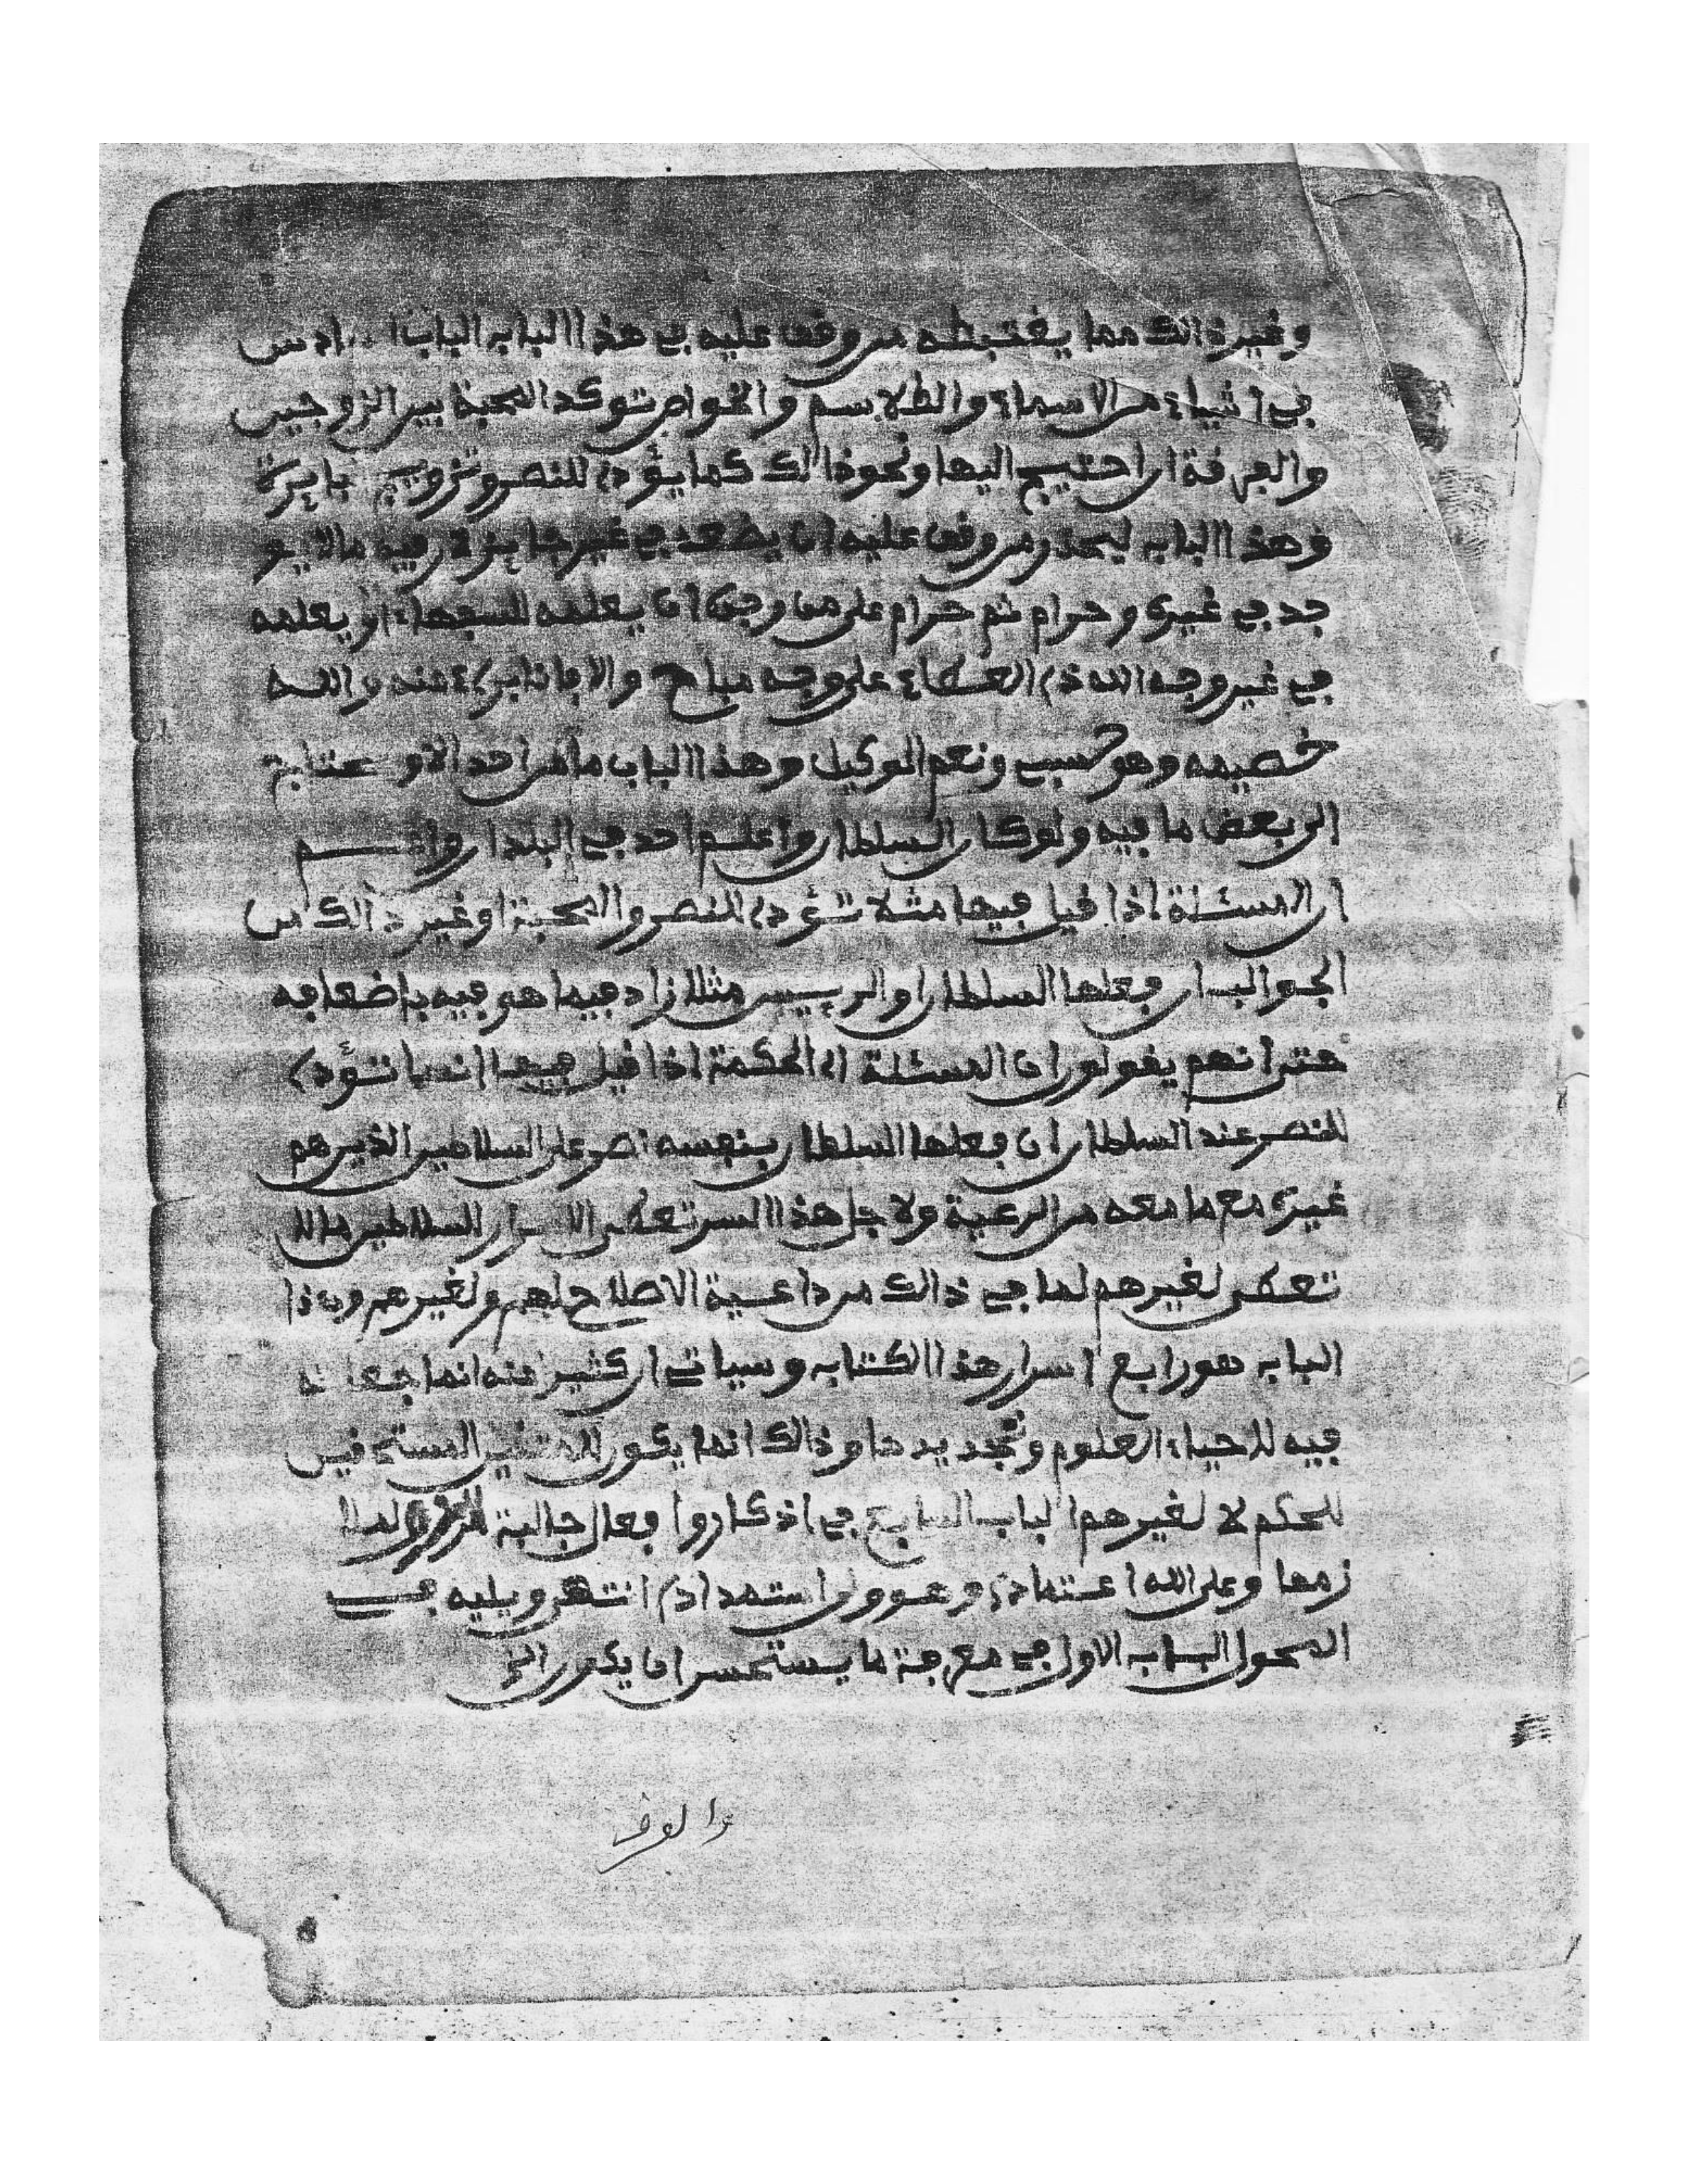 وغير ذالك مما يغتبطه من وقف عليه في هذا الباب الباب ادس
في اشياء من الاسماء والطلاسم والخواص توكد المحبة بين الزوجين
والفرقة ان احتيج اليها ونحو ذالك كما يؤدى للنصر وتزويج
وهذا الباب ليحذر من وقف عليه ان يضعه في غير فيه ما لا يو
جد في غيره وحرام ثم حرام على من وجده ان يعلمه للسفهاء او يعلمه
في غير وجه الله ذى العطاء على وجه مباح والا فانا برىء منه والله
خصيمه وهو حسبي ونعم الوكيل وهذا الباب ما من احد الا و
الى بعض ما فيه ولو كان السلطان واعلم احد في البلدان
ان المسئلة اذا قيل فيها مثلا تؤدى للنصر والمحبة او غير ذالك من
الجوالب ان فعلها السلطان او الرييس مثلا زاد فيها هو فيه باضعافه
حتى انهم يقولون ان المسئلة اى الحكمة اذا قيل فيها انها تؤدى
للنصر عند السلطان ان فعلها السلطان بنفسه نصر على السلاطين الذين هم
غيره مع ما معه من الرعية ولاجل هذا السر تعطى السلاطين ما لا
تعطى لغيرهم لما في ذالك من داعية الاصلاح لهم ولغيرهم وهذا
الباب هو رابع اسرار هذا الكتاب وسياتي ان كثير منه انما
فيه للاحياء العلوم وتجديدها وذالك انما يكون
للحكم لا لغيرهم الباب السابع في اذكار وافعال جالبة
زمها وعلى الله اعتمادى وهو ولى استمدادى انتهى ويليه في
المحول الباب الاول في معرفة ما يستحسن ان يكون الخ